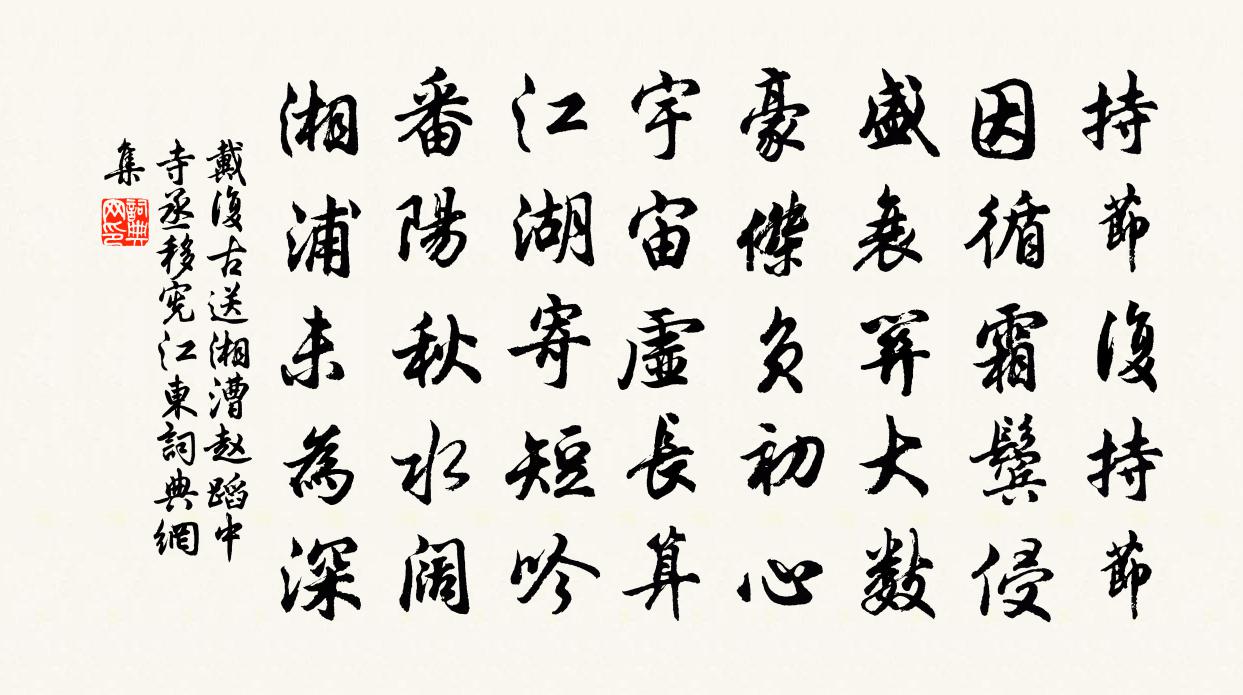 持節復持節
因循霜鬢侵
盛衰關大數
豪傑負初心
宇宙虛長算
江湖寄短吟
番陽秋水闊
湘浦未為深
戴復古送湘漕赵蹈中
寺丞移憲江東詞典網
集
詞典網印